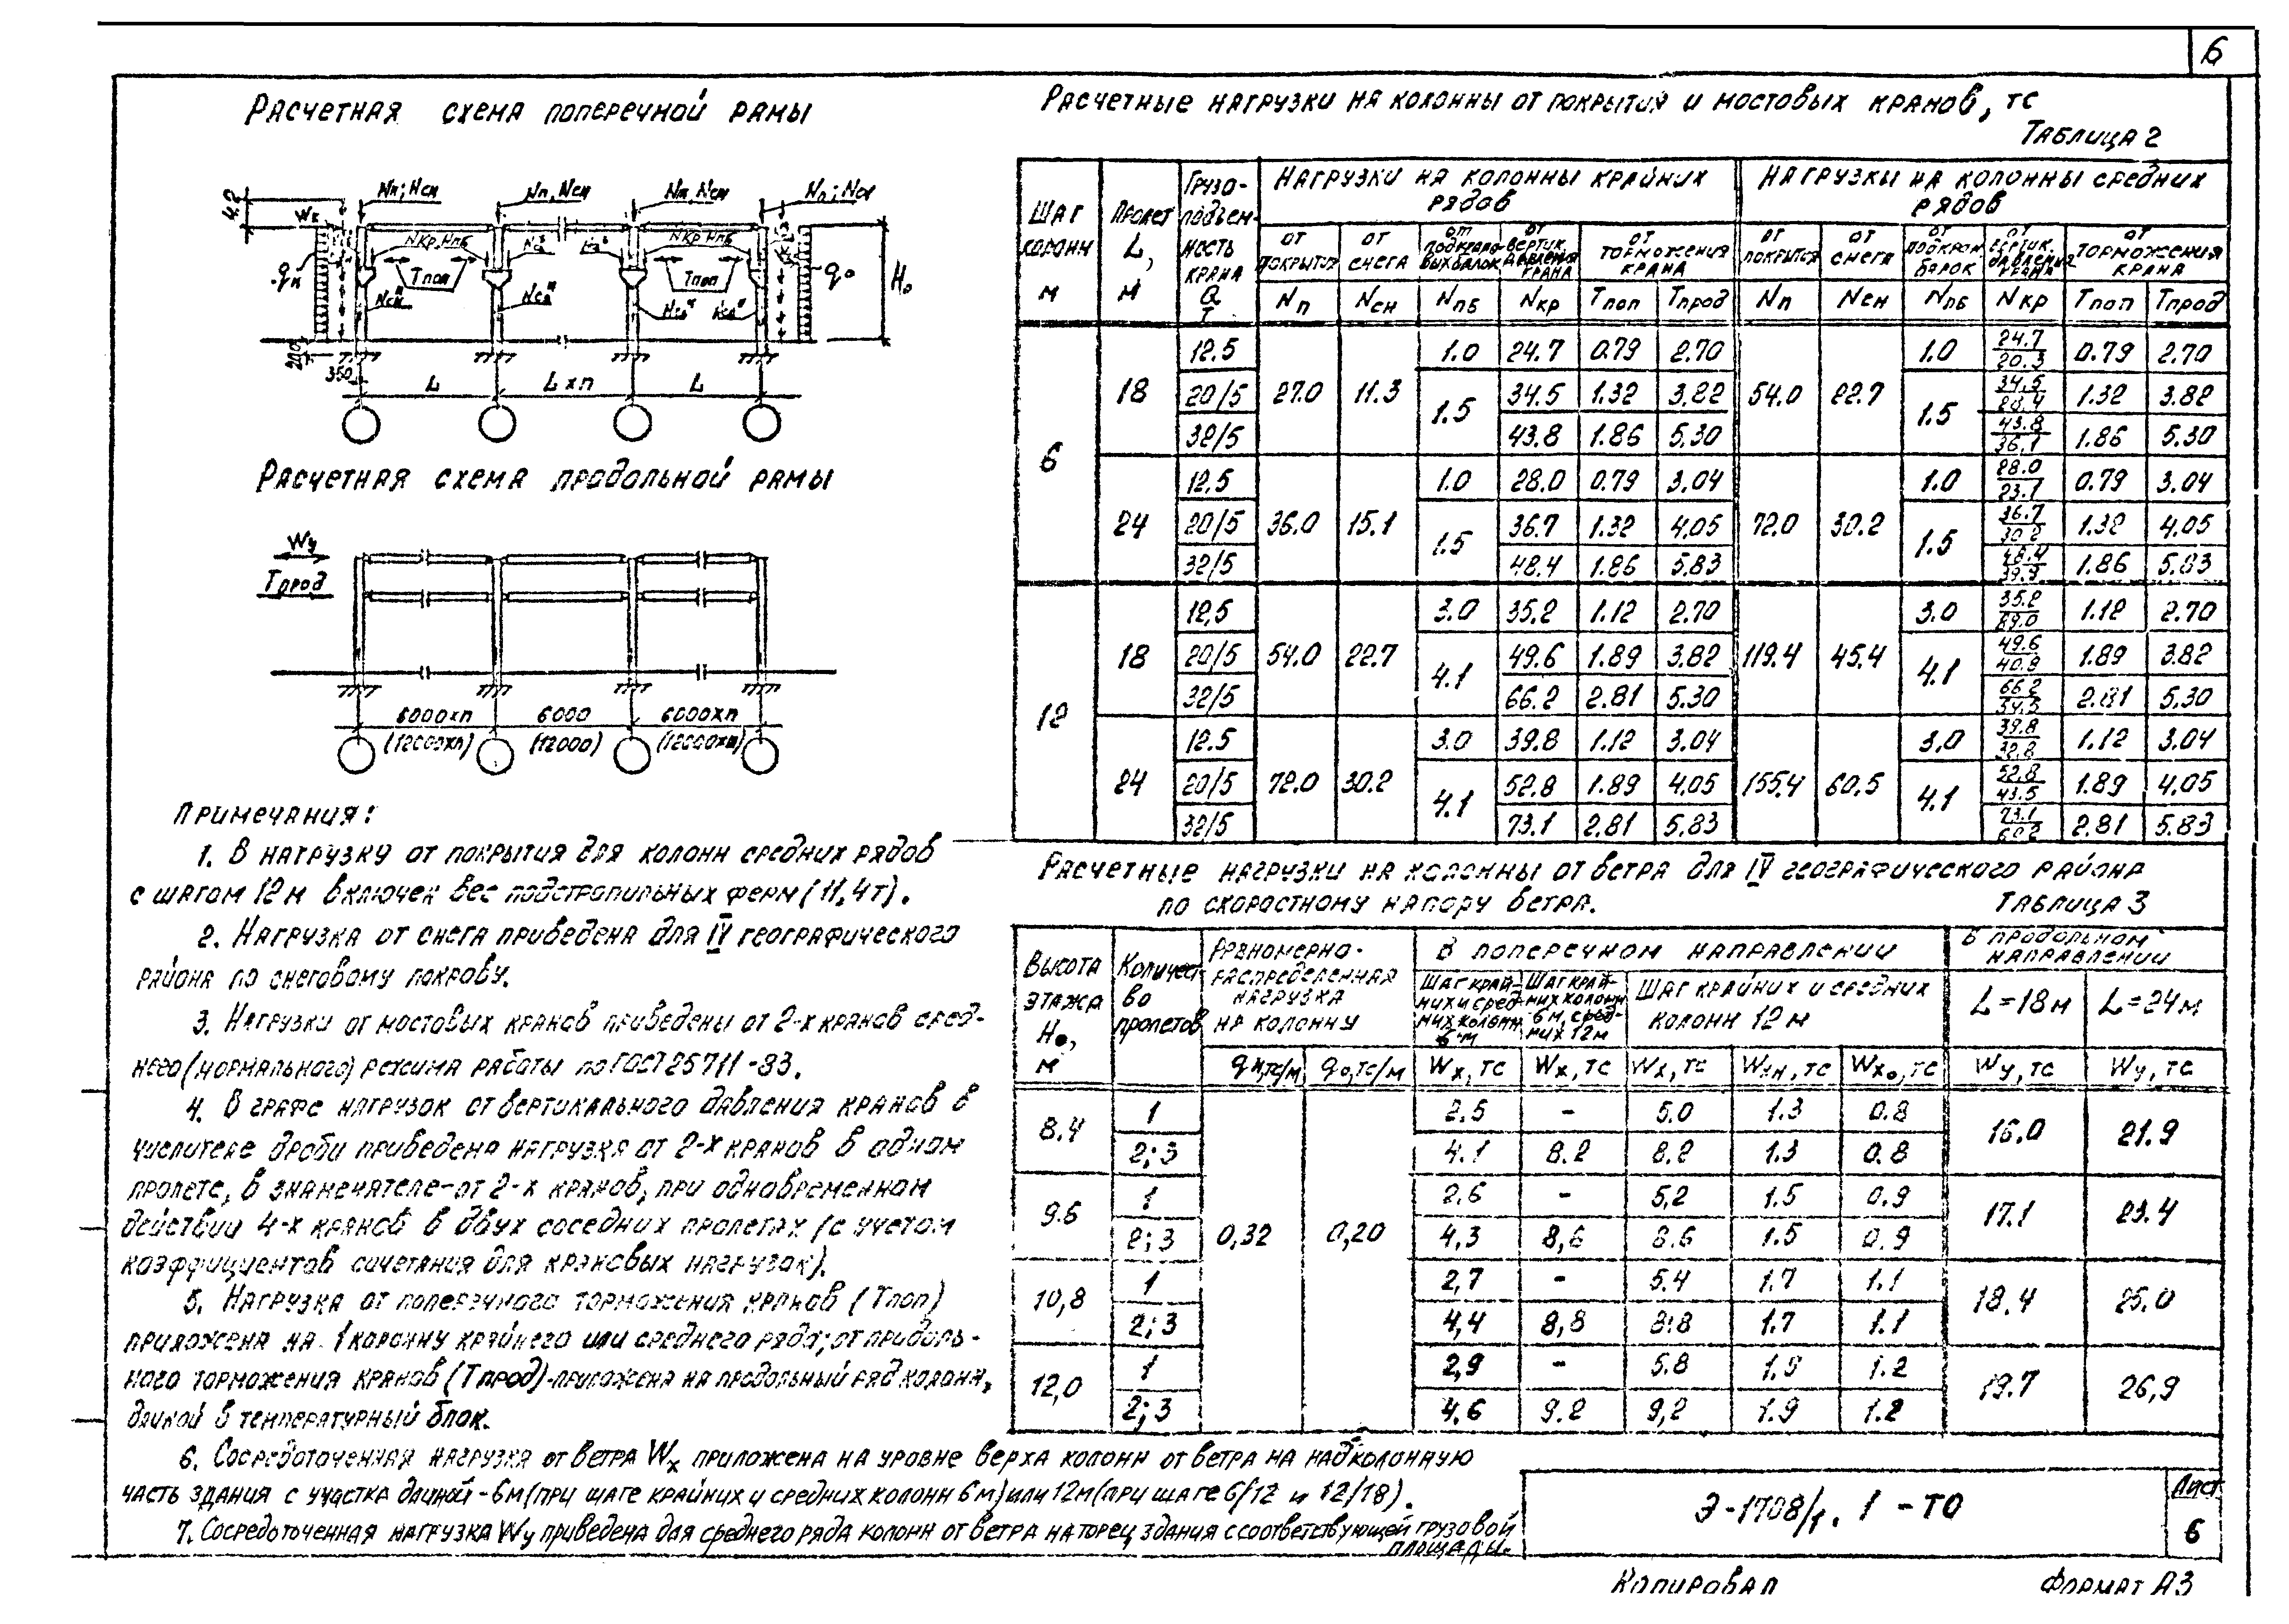 6
Расчетная схема поперечной рамы
Nп; Nсн
Nп, Nсн
Nп, Nсн
Nп; Nсн
4.2
Wx
Nкр, Nпб
Nкр, Nпб
Tпоп
Tпоп
qо
H₀
200
350
L
L×n
L
Расчетная схема продольной рамы
Wy
Tпрод
6000×n
6000
6000×n
(12000×n)
(12000)
(12000×n)
Примечания:
1. В нагрузку от покрытия для колонн средних рядов
с шагом 12 м включен вес подстропильных ферм (11,4т).
2. Нагрузка от снега приведена для IV географического
района по снеговому покрову.
3. Нагрузки от мостовых кранов приведены от 2-х кранов сред-
него (нормального) режима работы по ГОСТ 25711-83.
4. В графе нагрузок от вертикального давления кранов в
числителе дроби приведена нагрузка от 2-х кранов в одном
пролете, в знаменателе - от 2-х кранов, при одновременном
действии 4-х кранов в двух соседних пролетах (с учетом
коэффициентов сочетания для крановых нагрузок).
5. Нагрузка от поперечного торможения кранов (Tпоп)
приложена на 1 колонну крайнего или среднего ряда; от продоль-
ного торможения кранов (Tпрод) - приложена на продольный ряд колонн,
длиной в температурный блок.
6. Сосредоточенная нагрузка от ветра Wx приложена на уровне верха колонн от ветра на надколонную
часть здания с участка длиной - 6м (при шаге крайних и средних колонн 6м) или 12м (при шаге 6/12 и 12/18).
7. Сосредоточенная нагрузка Wy приведена для среднего ряда колонн от ветра на торец здания с соответствующей грузовой
площади.
Расчетные нагрузки на колонны от покрытия и мостовых кранов, тс
Таблица 2
Шаг колонн м | Пролет L, м | Грузоподъемность крана Q т | Нагрузки на колонны крайних рядов | Нагрузки на колонны средних рядов
от покрытия | от снега | от подкрановых балок | от вертик. давления крана | от торможения крана | от покрытия | от снега | от подкран. балок | от вертик. давления крана | от торможения крана
Nп | Nсн | Nпб | Nкр | Tпоп | Tпрод | Nп | Nсн | Nпб | Nкр | Tпоп | Tпрод
6 | 18 | 12.5 | 27.0 | 11.3 | 1.0 | 24.7 | 0.79 | 2.70 | 54.0 | 22.7 | 1.0 | 24.7/20.3 | 0.79 | 2.70
20/5 | 1.5 | 34.5 | 1.32 | 3.82 | 1.5 | 34.5/28.4 | 1.32 | 3.82
32/5 | 43.8 | 1.86 | 5.30 | 43.8/36,1 | 1.86 | 5.30
24 | 12,5 | 36.0 | 15.1 | 1.0 | 28.0 | 0.79 | 3.04 | 72.0 | 30.2 | 1.0 | 28.0/23.1 | 0.79 | 3.04
20/5 | 1.5 | 36.7 | 1.32 | 4,05 | 1.5 | 36.7/30.2 | 1.32 | 4.05
32/5 | 48.4 | 1.86 | 5.83 | 48.4/39.9 | 1.86 | 5.83
12 | 18 | 12,5 | 54.0 | 22.7 | 3.0 | 35.2 | 1.12 | 2.70 | 119.4 | 45.4 | 3.0 | 35.2/29.0 | 1.12 | 2.70
20/5 | 4.1 | 49.6 | 1.89 | 3.82 | 4.1 | 49.6/40.9 | 1.89 | 3.82
32/5 | 66.2 | 2.81 | 5.30 | 66.2/54.5 | 2.81 | 5.30
24 | 12.5 | 72.0 | 30.2 | 3.0 | 39.8 | 1.12 | 3.04 | 155,4 | 60,5 | 3,0 | 39.8/32.8 | 1.12 | 3.04
20/5 | 4.1 | 52.8 | 1.89 | 4,05 | 4.1 | 52.8/43.5 | 1.89 | 4,05
32/5 | 73.1 | 2.81 | 5.83 | 73.1 | 2.81 | 5.83
Расчетные нагрузки на колонны от ветра для IV географического района
по скоростному напору ветра.
Таблица 3
Высота этажа H₀, м | Количество пролетов | Равномерно-распределенная нагрузка на колонну | В поперечном направлении | В продольном направлении
Шаг крайних и средних колонн 6 м | Шаг крайних колонн 6 м, средних 12 м | Шаг крайних и средних колонн 12 м | L=18м | L=24м
qн, тс/м | qо, тс/м | Wx, тс | Wx, тс | Wx, тс | Wxн, тс | Wxо, тс | Wy, тс | Wy, тс
8.4 | 1 | 0,32 | 0,20 | 2,5 | - | 5.0 | 1.3 | 0.8 | 16.0 | 21.9
2; 3 | 4.1 | 8.2 | 8.2 | 1.3 | 0.8
9.6 | 1 | 2,6 | - | 5,2 | 1.5 | 0.9 | 17.1 | 23.4
2; 3 | 4,3 | 8,6 | 8.6 | 1.5 | 0.9
10,8 | 1 | 2,7 | - | 5.4 | 1.7 | 1.1 | 18.4 | 25.0
2; 3 | 4,4 | 8,8 | 8.8 | 1.7 | 1.1
12,0 | 1 | 2,9 | - | 5.8 | 1.9 | 1.2 | 19.7 | 26,9
2; 3 | 4,6 | 9.2 | 9,2 | 1.9 | 1.2
Э-1708/1. 1 - ТО
Лист
6
Копировал
Формат А3